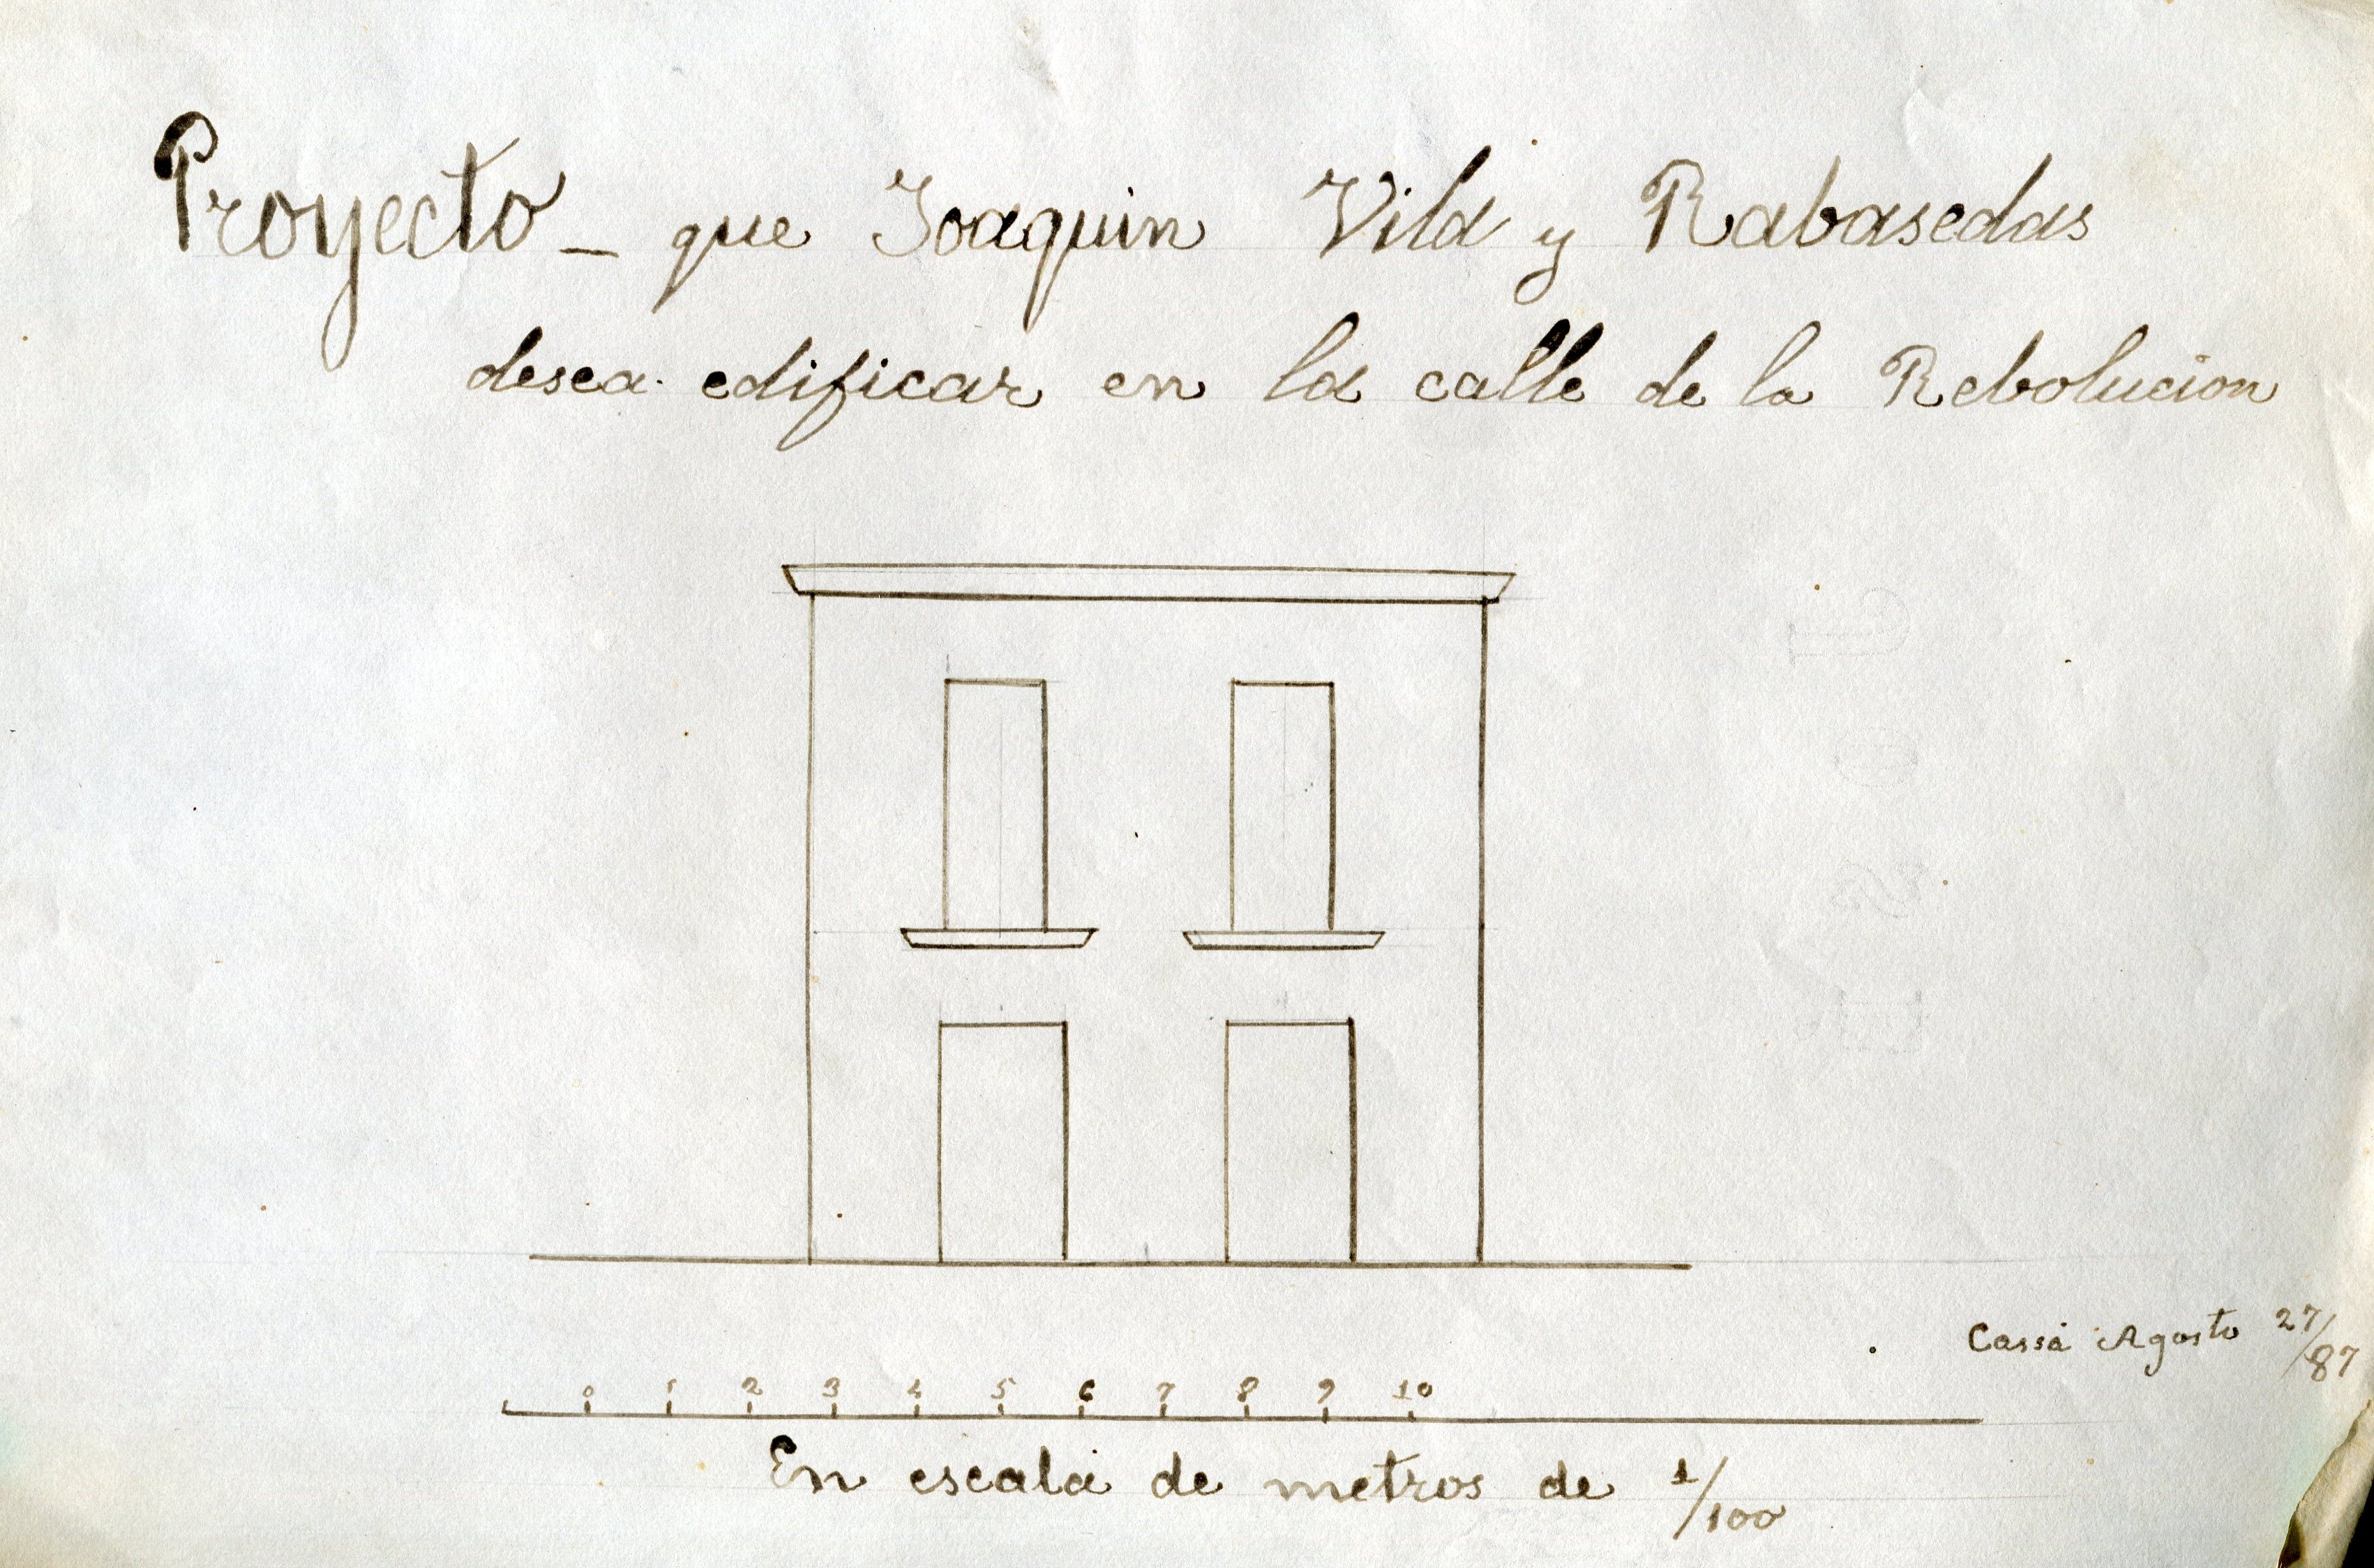 Proyecto - que Joaquin Vila y Rabasedas
desea edificar en la calle de la Rebolucion
Cassá Agosto 27/87
0 1 2 3 4 5 6 7 8 9 10
En escala de metros de 1/100